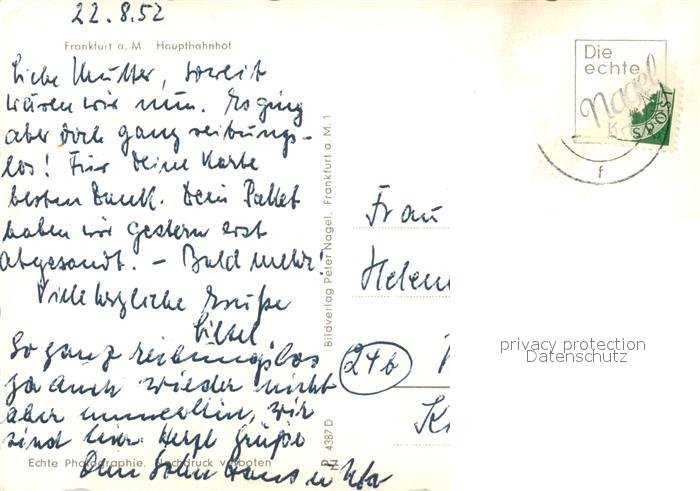 22.8.52
Frankfurt a. M. Hauptbahnhof
Liebe Mutter, soweit
wären wir nun. Es ging
aber doch ganz reibungs-
los! Für Deine Karte
besten Dank. Dein Paket
haben wir gestern erst
abgesandt. – Bald mehr!
Viele herzliche Grüße
Liesel
So ganz reibungslos
ja auch wieder nicht
aber immerhin, wir
sind hier. Herzl Grüße
Dein Sohn Hans u
Echte Photographie. Nachdruck verboten
Bildverlag Peter Nagel, Frankfurt a. M. 1
4387 D
Die
echte
Nagel
POST
f
Frau
Helen
24b
privacy protection
Datenschutz